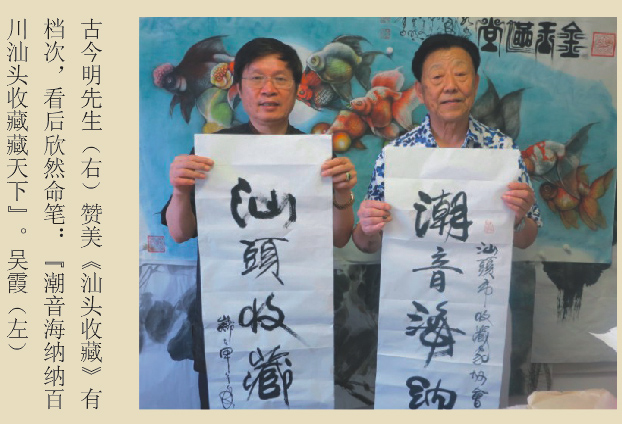 古今明先生（右）赞美《汕头收藏》有
档次，看后欣然命笔：『潮音海纳纳百
川汕头收藏藏天下』。吴霞（左）
金玉满堂
潮音濟納
汕頭市收藏家协會
汕頭收藏